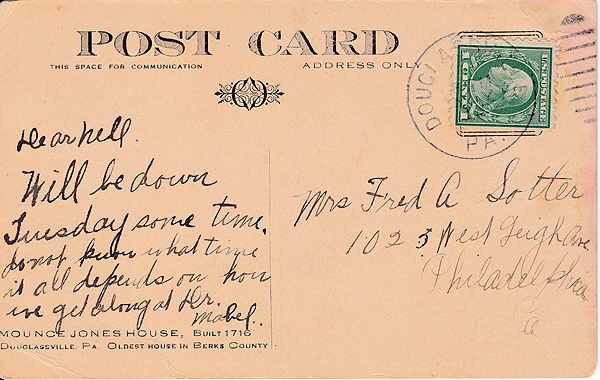 POST CARD
THIS SPACE FOR COMMUNICATION
ADDRESS ONLY
DOUGLAS
PA.
U.S. POSTAGE
1 CENT 1
Dear nell.
Will be down
Tuesday some time.
do not know what time
it all depends on how
we get along at Dr.
Mabel.
Mrs Fred A Sotter
1025 West Leigh Ave
Philadelphia
Pa
MOUNCE JONES HOUSE, BUILT 1716
DOUGLASSVILLE, PA. OLDEST HOUSE IN BERKS COUNTY